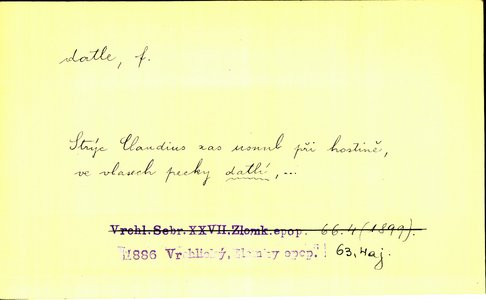 datle, f.
Strýc Claudius zas usnul při hostině,
ve vlasech pecky datlí,...
Vrchl.Sebr.XXVII.Zlomk.epop. 66.4(1899).
1886 Vrchlický, Zlomky epop. 63,4aj.